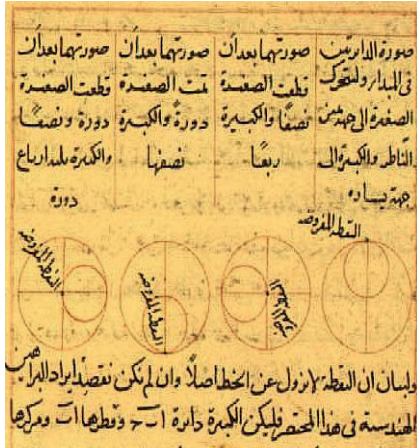 صورة الدايرتين
فى المبدا ولتتحرك
الصغيرة الى جهة يمين
الناظر والكبيرة الى
جهة يساره
صورتهما بعد ان
قطعت الصغيرة
نصفًا والكبيرة
ربعًا
صورتهما بعد ان
تمت الصغيرة
دورةً والكبيرة
نصفها
صورتهما بعد ان
قطعت الصغيرة
دورة ونصفًا
والكبيرة ثلثة ارباع
دورة
النقطة المفروضة
النقطة المفروضة
النقطة المفروضة
النقطة المفروضة
ولبيان ان النقطة لا تزول عن الخط اصلًا وان لم نكن نقصد ايراد البراهين
الهندسية فى هذا المختصر فليكن الكبيرة دائرة ا ب ج وقطرها ا ب ومركزها